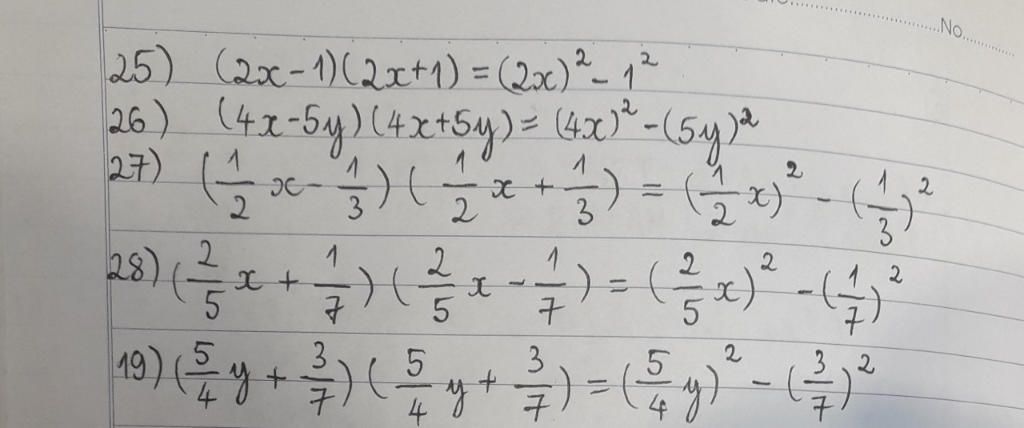 No.
25) (2x-1)(2x+1) = (2x)² - 1²
26) (4x-5y)(4x+5y) = (4x)² - (5y)²
27) (1/2 x - 1/3)(1/2 x + 1/3) = (1/2 x)² - (1/3)²
28) (2/5 x + 1/7)(2/5 x - 1/7) = (2/5 x)² - (1/7)²
19) (5/4 y + 3/7)(5/4 y + 3/7) = (5/4 y)² - (3/7)²